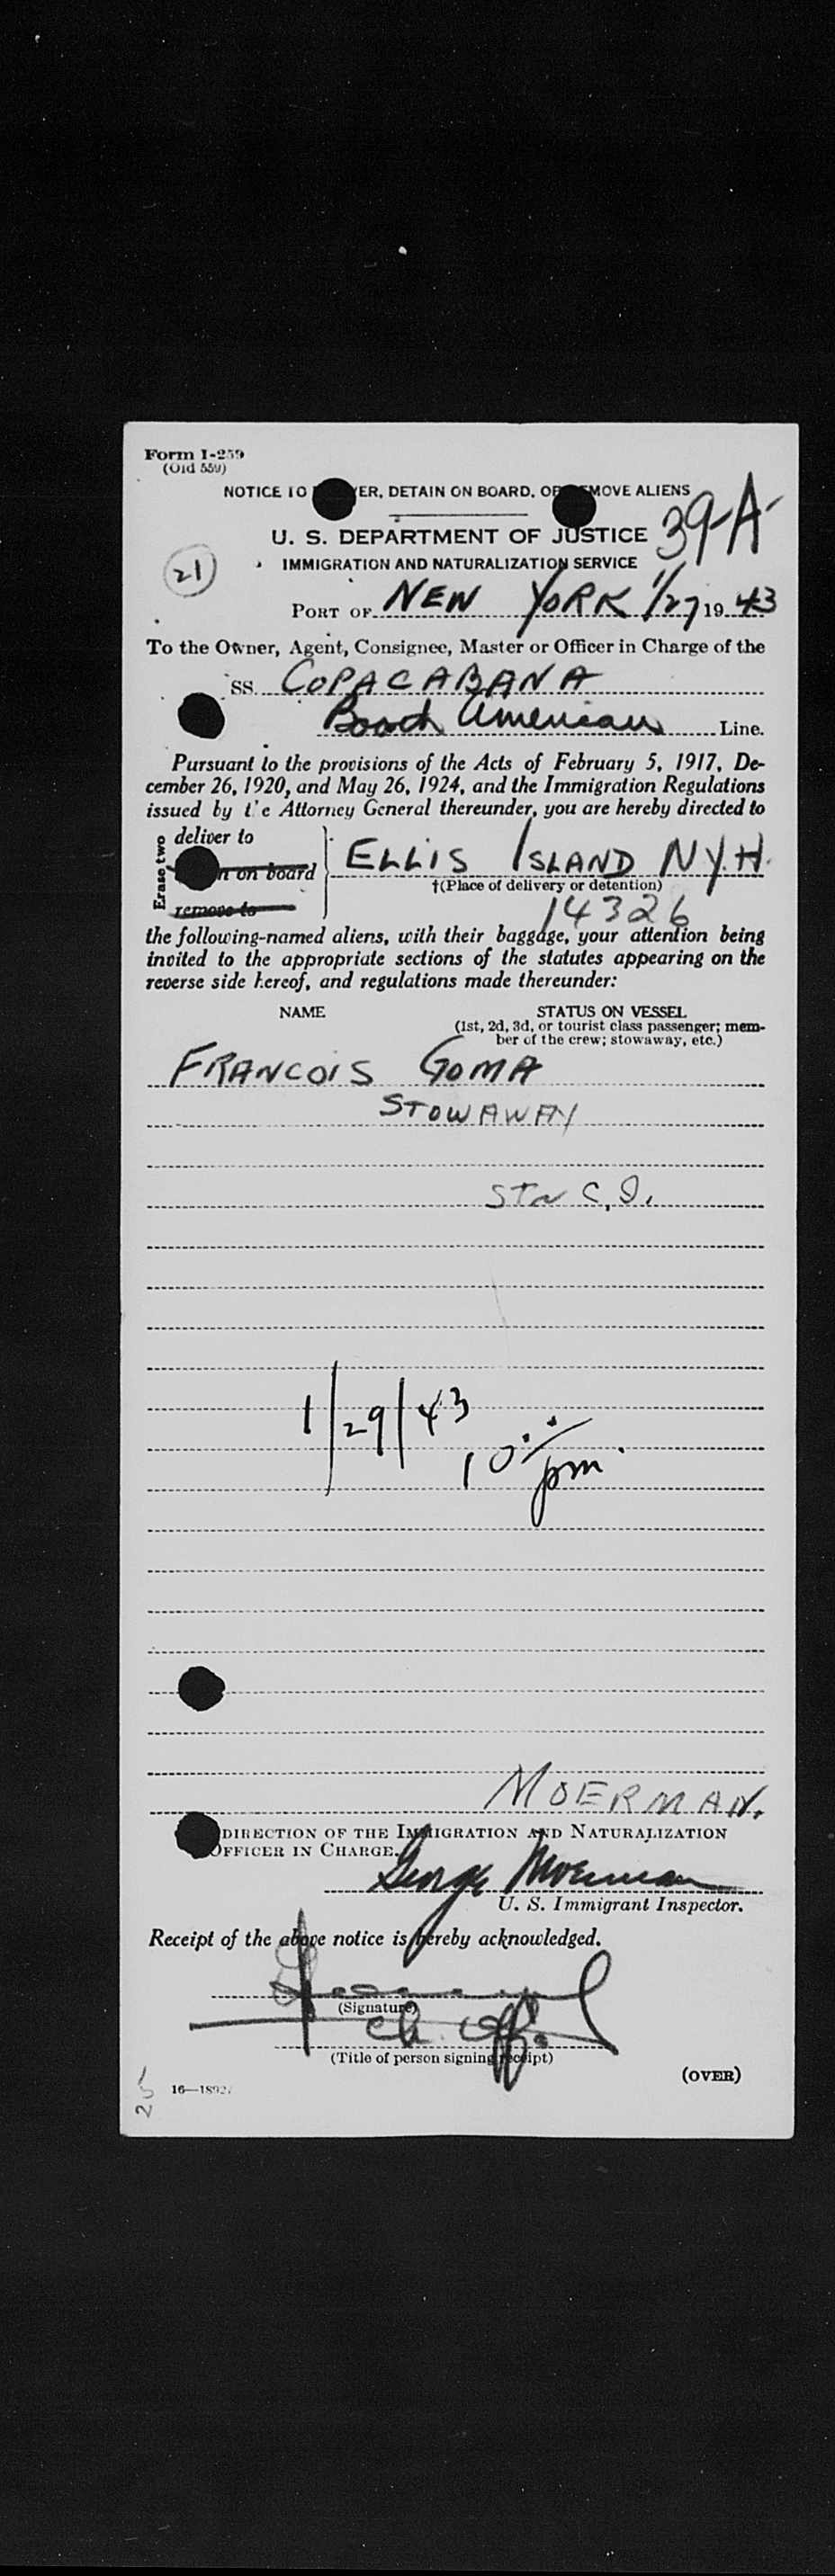 Form I-259
(Old 559)
NOTICE TO ER, DETAIN ON BOARD, OR MOVE ALIENS
39-A
U. S. DEPARTMENT OF JUSTICE
21
IMMIGRATION AND NATURALIZATION SERVICE
PORT OF NEW YORK 1/27 1943
To the Owner, Agent, Consignee, Master or Officer in Charge of the
SS. COPACABANA
Booth American Line.
Pursuant to the provisions of the Acts of February 5, 1917, De-
cember 26, 1920, and May 26, 1924, and the Immigration Regulations
issued by the Attorney General thereunder, you are hereby directed to
Erase two
deliver to
n on board
remove to
ELLIS ISLAND NYH.
†(Place of delivery or detention)
14326
the following-named aliens, with their baggage, your attention being
invited to the appropriate sections of the statutes appearing on the
reverse side hereof, and regulations made thereunder:
NAME STATUS ON VESSEL
(1st, 2d, 3d, or tourist class passenger; mem-
ber of the crew; stowaway, etc.)
FRANCOIS GOMA
STOWAWAY
1/29/43
10 pm.
MOERMAN.
DIRECTION OF THE IMMIGRATION AND NATURALIZATION
OFFICER IN CHARGE.
George Moerman
U. S. Immigrant Inspector.
Receipt of the above notice is hereby acknowledged.
(Signature)
Ch. Off.
(Title of person signing receipt)
(OVER)
25